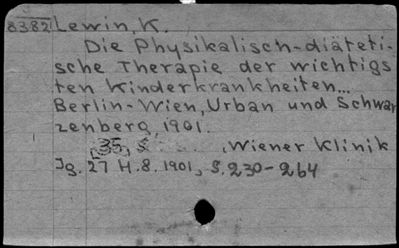 8382 Lewin, K.
Die Physikalisch-diäteti-
sche Therapie der wichtigs
ten Kinderkrankheiten...
Berlin-Wien, Urban und Schwar
zenberg, 1901.
35, S. , Wiener Klinik
Jg. 27 H. 8. 1901, S. 230-264